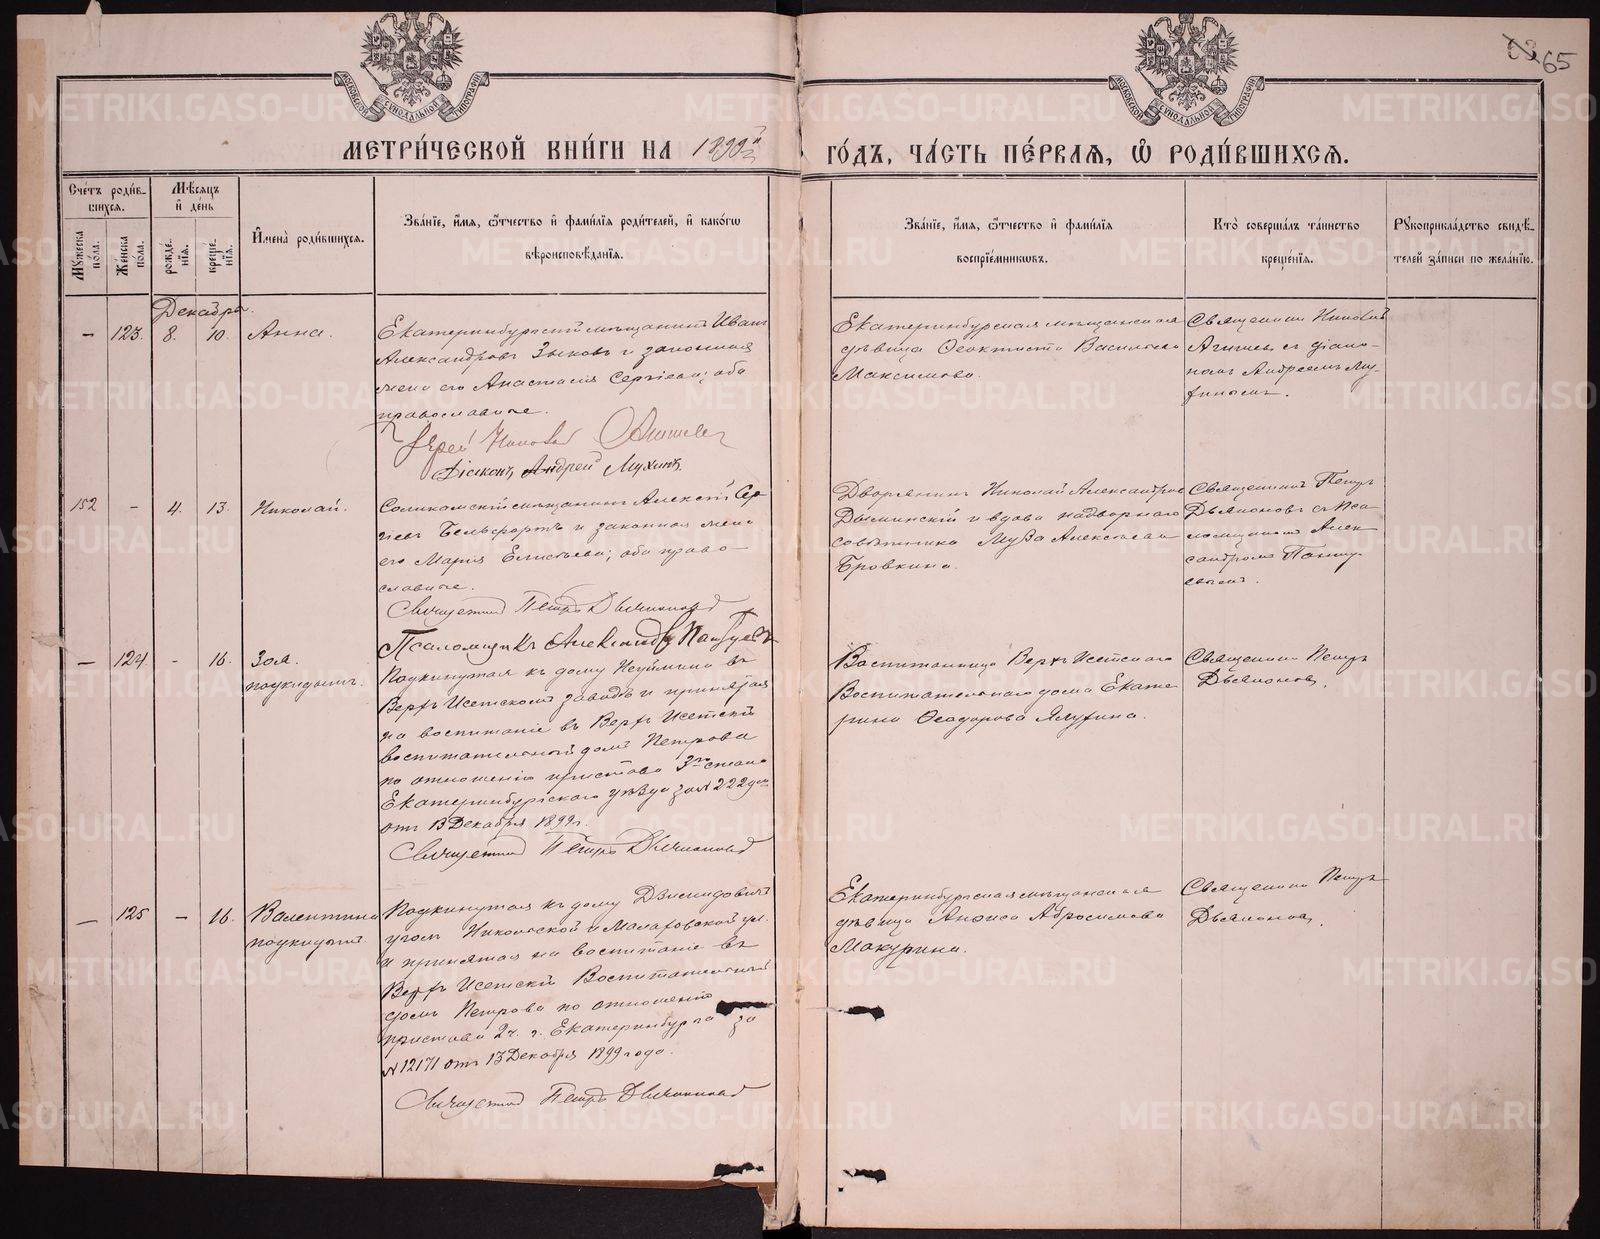 63 65
МОСКОВСКОЙ СѴНОДАЛЬНОЙ ТИПОГРАФІИ
МОСКОВСКОЙ СѴНОДАЛЬНОЙ ТИПОГРАФІИ
МЕТРИ́ЧЕСКОЙ КНИ́ГИ НА 1899й
ГО́ДЪ, ЧА́СТЬ ПЕ́РВАЯ, Ѡ РОДИ́ВШИХСЯ.
Сче́тъ роди́в-
шихся.
Мѣ́сяцъ
и҆ де́нь
Мꙋ́жеска
по́ла.
Же́нска
по́ла.
рожде́-
нїя.
креще́-
нїя.
И҆мена̀ роди́вшихся.
Зва́нїе, и҆́мя, ѻ҆́тчество и҆ фами́лїя роди́телей, и҆ како́гѡ
вѣроисповѣ́данїя.
Зва́нїе, и҆́мя, ѻ҆́тчество и҆ фами́лїя
воспрїе́мникѡвъ.
Кто̀ соверша́лъ та́инство
креще́нїя.
Рꙋкоприкла́дство свидѣ́-
телей за́писи по жела́нїю.
Декабря.
– 123. 8. 10. Анна.
Екатеринбургскій мѣщанинъ Иванъ
Александровъ Зыковъ и законная
жена его Анастасія Сергіева; оба
православные.
Іерей Николай
Діаконъ Андрей Мухинъ.
Екатеринбургская мѣщанская
дѣвица Ѳеоктиста Васильева
Максимова.
Священникъ Николай
съ діако-
номъ Андреемъ Му-
хинымъ.
152 – 4. 13. Николай.
Соликамскій мѣщанинъ Алексѣй Сер-
гіевъ Бельфортъ и законная жена
его Марія Елисѣева; оба право-
славные.
Священникъ Петръ Дьяконовъ
Псаломщикъ Александръ
Дворянинъ Николай Александровъ
Дыминскій и вдова надворнаго
совѣтника Муза Алексѣева
Бровкина.
Священникъ Петръ
Дьяконовъ съ Пса-
ломщикомъ Алек-
сандромъ
– 124. – 16. Зоя.
подкидышъ.
Подкинутая къ дому въ
Верхъ Исетскомъ заводѣ и принятая
на воспитаніе въ Верхъ Исетскій
воспитательный домъ Петрова
по отношенію пристава 3го стана
Екатеринбургскаго уѣзда за №
отъ 13 Декабря 1899 г.
Священникъ Петръ Дьяконовъ
Воспитанница Верхъ Исетскаго
Воспитательнаго дома Екате-
рина Ѳеодорова Ялухина.
Священникъ Петръ
Дьяконовъ.
– 125 – 16. Валентина
подкидышъ.
Подкинутая къ дому Давидовичъ
уголъ Никольской и Малаховской ул.
и принятая на воспитаніе въ
Верхъ Исетскій Воспитательный
домъ Петрова по отношенію
пристава 2 ч. г. Екатеринбурга за
№ 12171 отъ 13 Декабря 1899 года.
Священникъ Петръ Дьяконовъ
Екатеринбургская мѣщанская
дѣвица Анѳиса Абросимова
Макурина.
Священникъ Петръ
Дьяконовъ.
METRIKI.GASO-URAL.RU